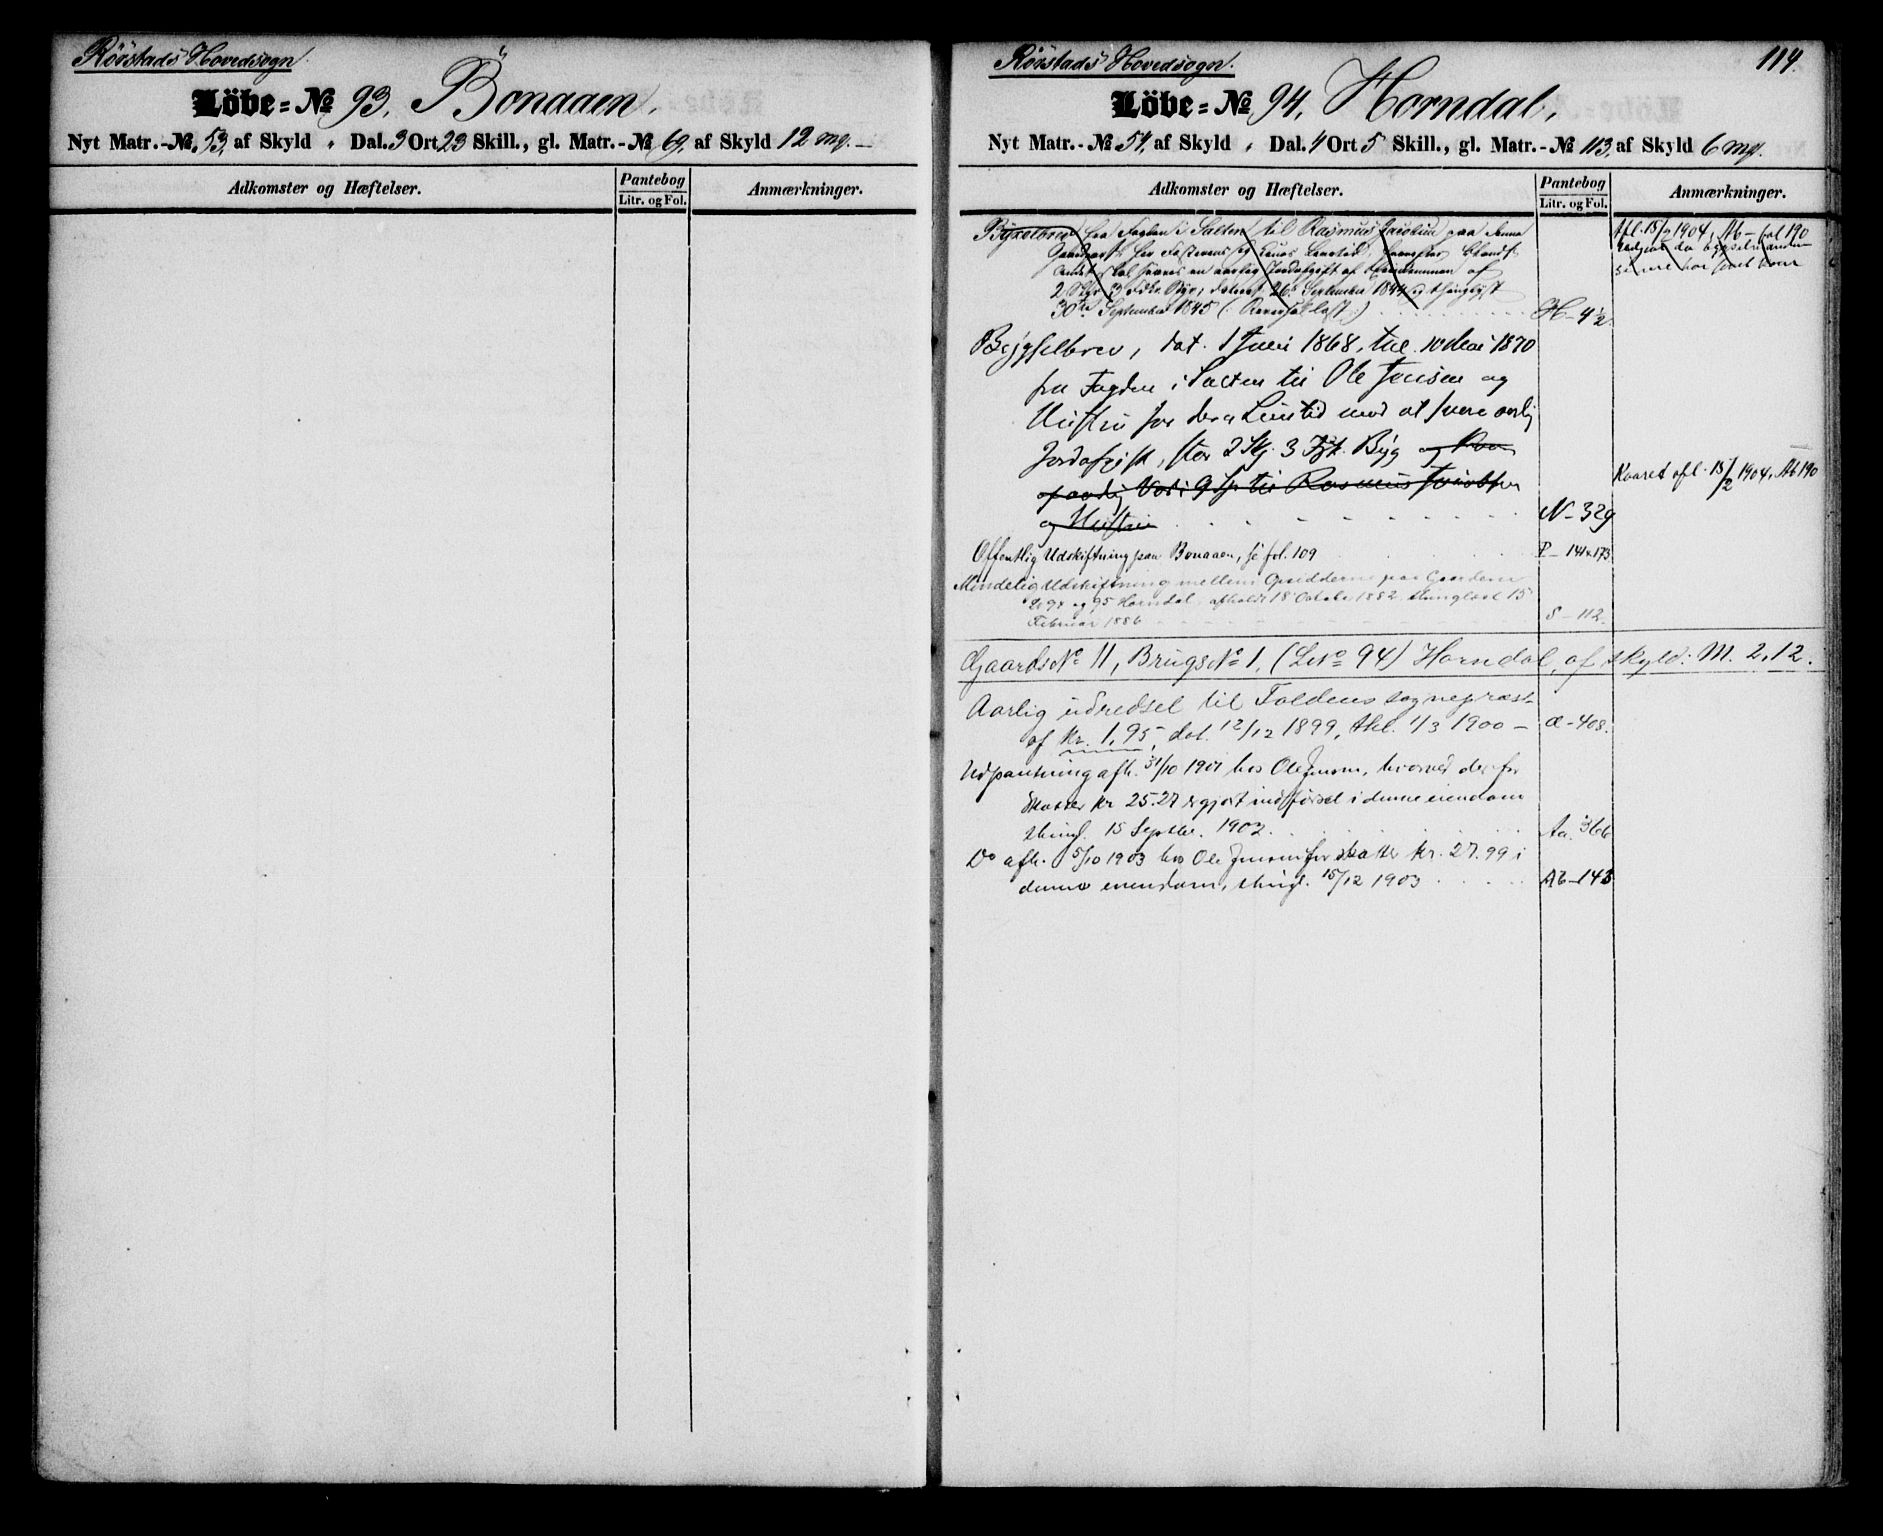 Rörstads Hovedsogn.
Löbe=No 93. Bonaaen.
Nyt Matr.-No. 53, af Skyld „ Dal. 3 Ort 23 Skill., gl. Matr.-No 69, af Skyld 12 mg.
Adkomster og Hæftelser.
Pantebog
Litr. og Fol.
Anmærkninger.
Rörstads Hovedsogn.
114.
Löbe=No 94. Horndal.
Nyt Matr.-No 54, af Skyld „ Dal. 4 Ort 5 Skill., gl. Matr.-No 113, af Skyld 6 mg.
Adkomster og Hæftelser.
Pantebog
Litr. og Fol.
Anmærkninger.
Bygselbrev fra Fogden i Salten til Rasmus Jacobsen paa denne
Gaardpart for Fæsterens og Kones Levetid, hvorefter blandt
andet skal svares en aarlig Jordafgift af Eiendommen af
2 Skjr 3 Fdkr Byg, dateret 26. September 1844 og thinglyst
30te September 1845 (: Reversal læst :) H-4½
Afl. 15/2 1904, Ab- fol 190
Bygselbrev, dat. 1 Juni 1868, thl. 10 Mai 1870
fra Fogden i Salten til Ole Jensen og
Hustru for deres Levetid mod at svare aarlig
Jordafgift, stor 2 Skj. 3 Fjk. Byg og Kaar
af aarlig Værdi 9 Sp til Rasmus Jacobsen
og Hustru N-329
Kaaret afl. 15/2 1904, Ab 190
Offentlig Udskiftning paa Bonaaen, se fol. 109 P-141 & 173
Mindelig Udskiftning mellem Opsidderne paa Gaardene
No 94 og 95 Horndal, afholdt 18 October 1882, thinglæst 15
Februar 1886 S-112.
Gaards No 11, Brugs No 1, (L No 94) Horndal, af skyld: M. 2,12.
Aarlig udredsel til Foldens sognepræst
af kr. 1,95, dat. 12/12 1899, thl. 1/3 1900 - Æ-408.
Udpantning afh. 31/10 1901 hos Ole Jensen, hvorved der for
Skatter kr 25.27 er gjort indførsel i denne eiendom
thingl. 15 Septbr. 1902. Aa. 366
Do afh. 5/10 1903 hos Ole Jensen for skatter kr. 27.99 i
denne eiendom, thingl. 15/12 1903 Ab-143